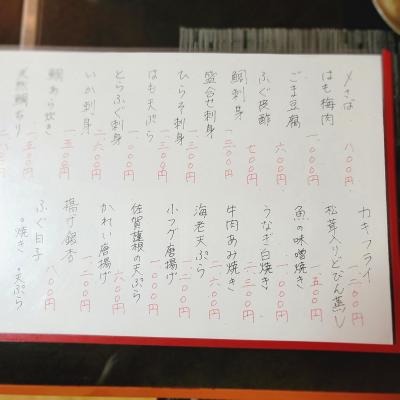 〆さば 八〇〇円
はも梅肉
ごま豆腐 六〇〇円
ふぐ皮酢 七〇〇円
鯛刺身 一三〇〇円
盛合せ刺身
ひらそ刺身 一三〇〇円
はも天ぷら 一三〇〇円
とらふぐ刺身 二六〇〇円
いか刺身
鯛あら炊き 一五〇〇円
天然鯛ちり
カキフライ 一二〇〇円
松茸入りどびん蒸し 一五〇〇円
魚の味噌焼き 一〇〇〇円
うなぎ白焼き 二三〇〇円
牛肉あみ焼き 二六〇〇円
海老天ぷら
小フグ唐揚げ
佐賀蓮根の天ぷら 六〇〇円
かれい唐揚げ
揚げ銀杏
ふぐ白子
・焼き ・天ぷら